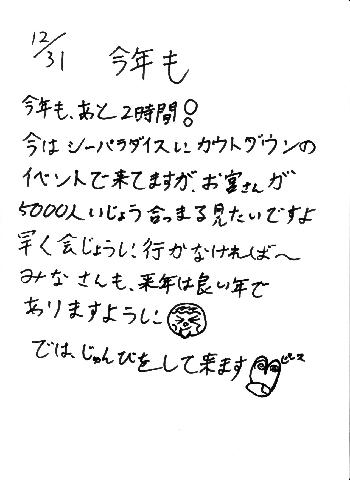 12/31 今年も
今年も、あと2時間!
今はシーパラダイスにカウトダウンの
イベントで来てますが、お客さんが
5000人いじょう合つまる見たいですよ
早く会じょうに行かなければ〜
みなさんも、来年は良い年で
ありますように
ではじゅんびをして来ます ピース